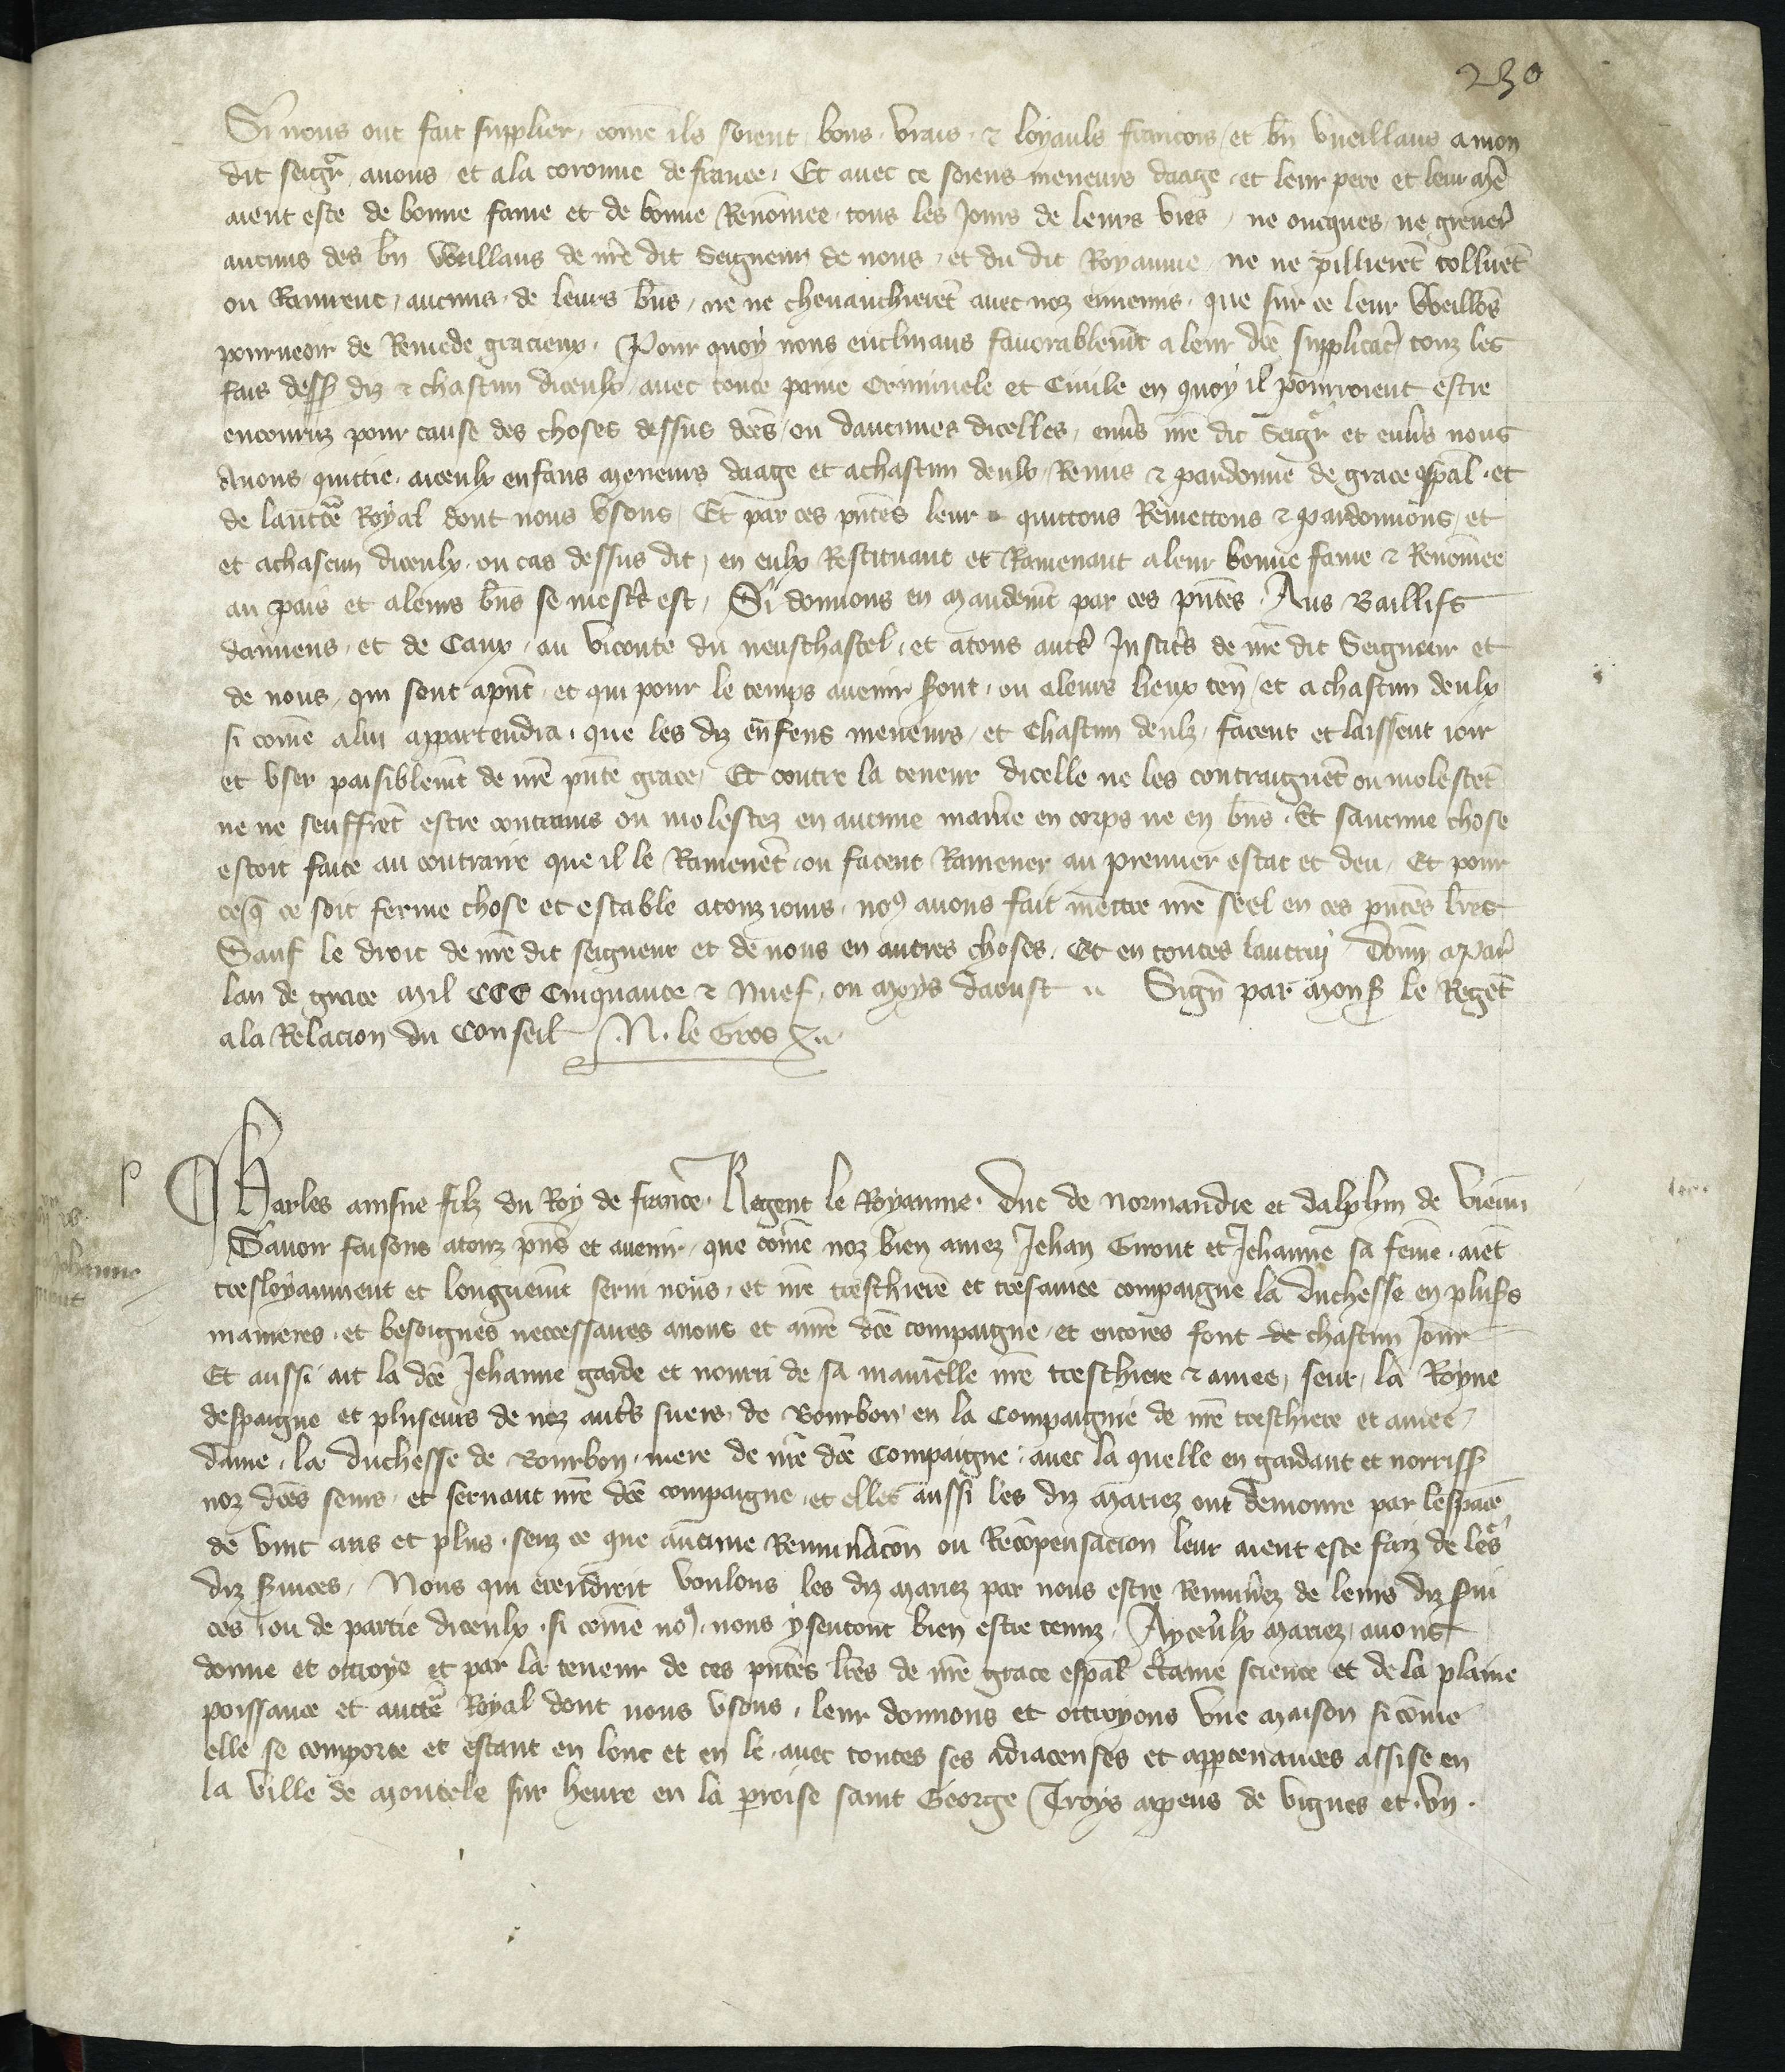 230
Si nous ont fait supplier, come ils soient bons, vrais, & loyauls francois, et bn vueillans a mon
dit seigr, a nous et a la coronne de france, Et avec ce soiens meneurs daage, et leur pere et leur mere
aient este de bonne fame et de bonne Renomee, tous les Jours de leurs vies, ne oncques, ne grever
aucuns des bn Vueillans de nre dit Seigneur de nous, et du dit Royaume, ne ne pillierent tollirent
ou Ravirent, aucuns, de leurs bns, ne ne chevauchierent avec noz ennemis, que sur ce leur Vueillons
pourveoir de Remede gracieux, Pour quoy nous enclinans favorablemt a leur dce supplicacion touz les
fais dessus diz & chascun diceulx, avec toute paine Criminele et Civile en quoy il pourroient estre
encouruz pour cause des choses dessus dces, ou daucunes dicelles, envs nre dit Seigr et envs nous
Avons quittie, aiceulx enfans meneurs daage et a chascun deulx, Remis & pardonne de grace espal, et
de lauctte Royal dont nous usons, Et par ces pntes leur quittons Remettons & Pardonnons, et
et a chascun diceulx, ou cas dessus dit, en eulx Restituant et Ramenant a leur bonne fame & Renomee
au pais et a leurs bns se mestr est, Si donnons en mandemt par ces pntes, Aus Baillifs
damiens, et de Caux, au viconte du neufchastel, et a tous autrs Justicrs de nre dit Seigneur et
de nous, qui sont a pnt, et qui pour le temps avenir sont, ou a leurs lieux ten, et a chascun deulx
si come a lui appartendra, que les diz enfens meneurs, et Chascun deulz, facent et laissent joir
et user paisiblemt de nre pnte grace, Et contre la teneur dicelle ne les contraignent ou molestent
ne ne seuffrent estre contrains ou molestez en aucune maniere en corps ne en bns, Et saucune chose
estoit faite au contraire que il le Ramenent, ou facent Ramener au premier estat et deu, Et pour
ce que ce soit ferme chose et estable a touz jours, nous avons fait mettre nre seel en ces pntes lres
Sauf le droit de nre dit seigneur et de nous en autres choses, Et en toutes lautruy, Donn a Par
lan de grace mil CCC Cinquante & Nuef, ou moys daoust .. Sign par mons le Regent
a la Relacion du Conseil N. le Gros X..
P
Charles ainsne filz du Roy de france, Regent le Royaume, Duc de normandie et dalphin de vienn
Savoir faisons a touz pns et avenir, que come noz bien amez Jehan Giront et Jehanne sa feme, aient
tresloyaument et longuemt servi nous, et nre treschiere et tresamee compaigne la duchesse en pluss
manieres, et besoignes neccessaires a nous et a nre dce compaigne, et encores font de chascun Jour
Et aussi ait la dce Jehanne garde et nourri de sa mamelle nre treschiere & amee, seur, la Royne
despaigne et pluseurs de noz autrs suers, de Bourbon en la Compaignie de nre treschiere et amee,
dame, la duchesse de Bourbon, mere de nre dce Compaigne, avec la quelle en gardant et norriss
noz dces seurs, et servant nre dce compaigne, et elles aussi les diz mariez ont demoure par lespace
de vint ans et plus, senz ce que aucune Remunacon ou Recompensacion leur aient este faiz de leurs
diz services, Nous qui en endroit voulons les diz mariez par nous estre Remunez de leurs diz servi
ces, ou de partie diceulx, si come nous, nous y sentont bien estre tenuz, Ayceulx mariez, avons
donne et ottroye et par la teneur de ces pntes lres de nre grace espal ctaine science et de la plaine
poissance et auctte Royal dont nous usons, leur donnons et ottroyons une maison si come
elle se comporte et estant en lonc et en le, avec toutes ses adjacenses et appartenances assise en
la ville de moncele sur heure en la proisse saint George Troys arpens de vignes et un.